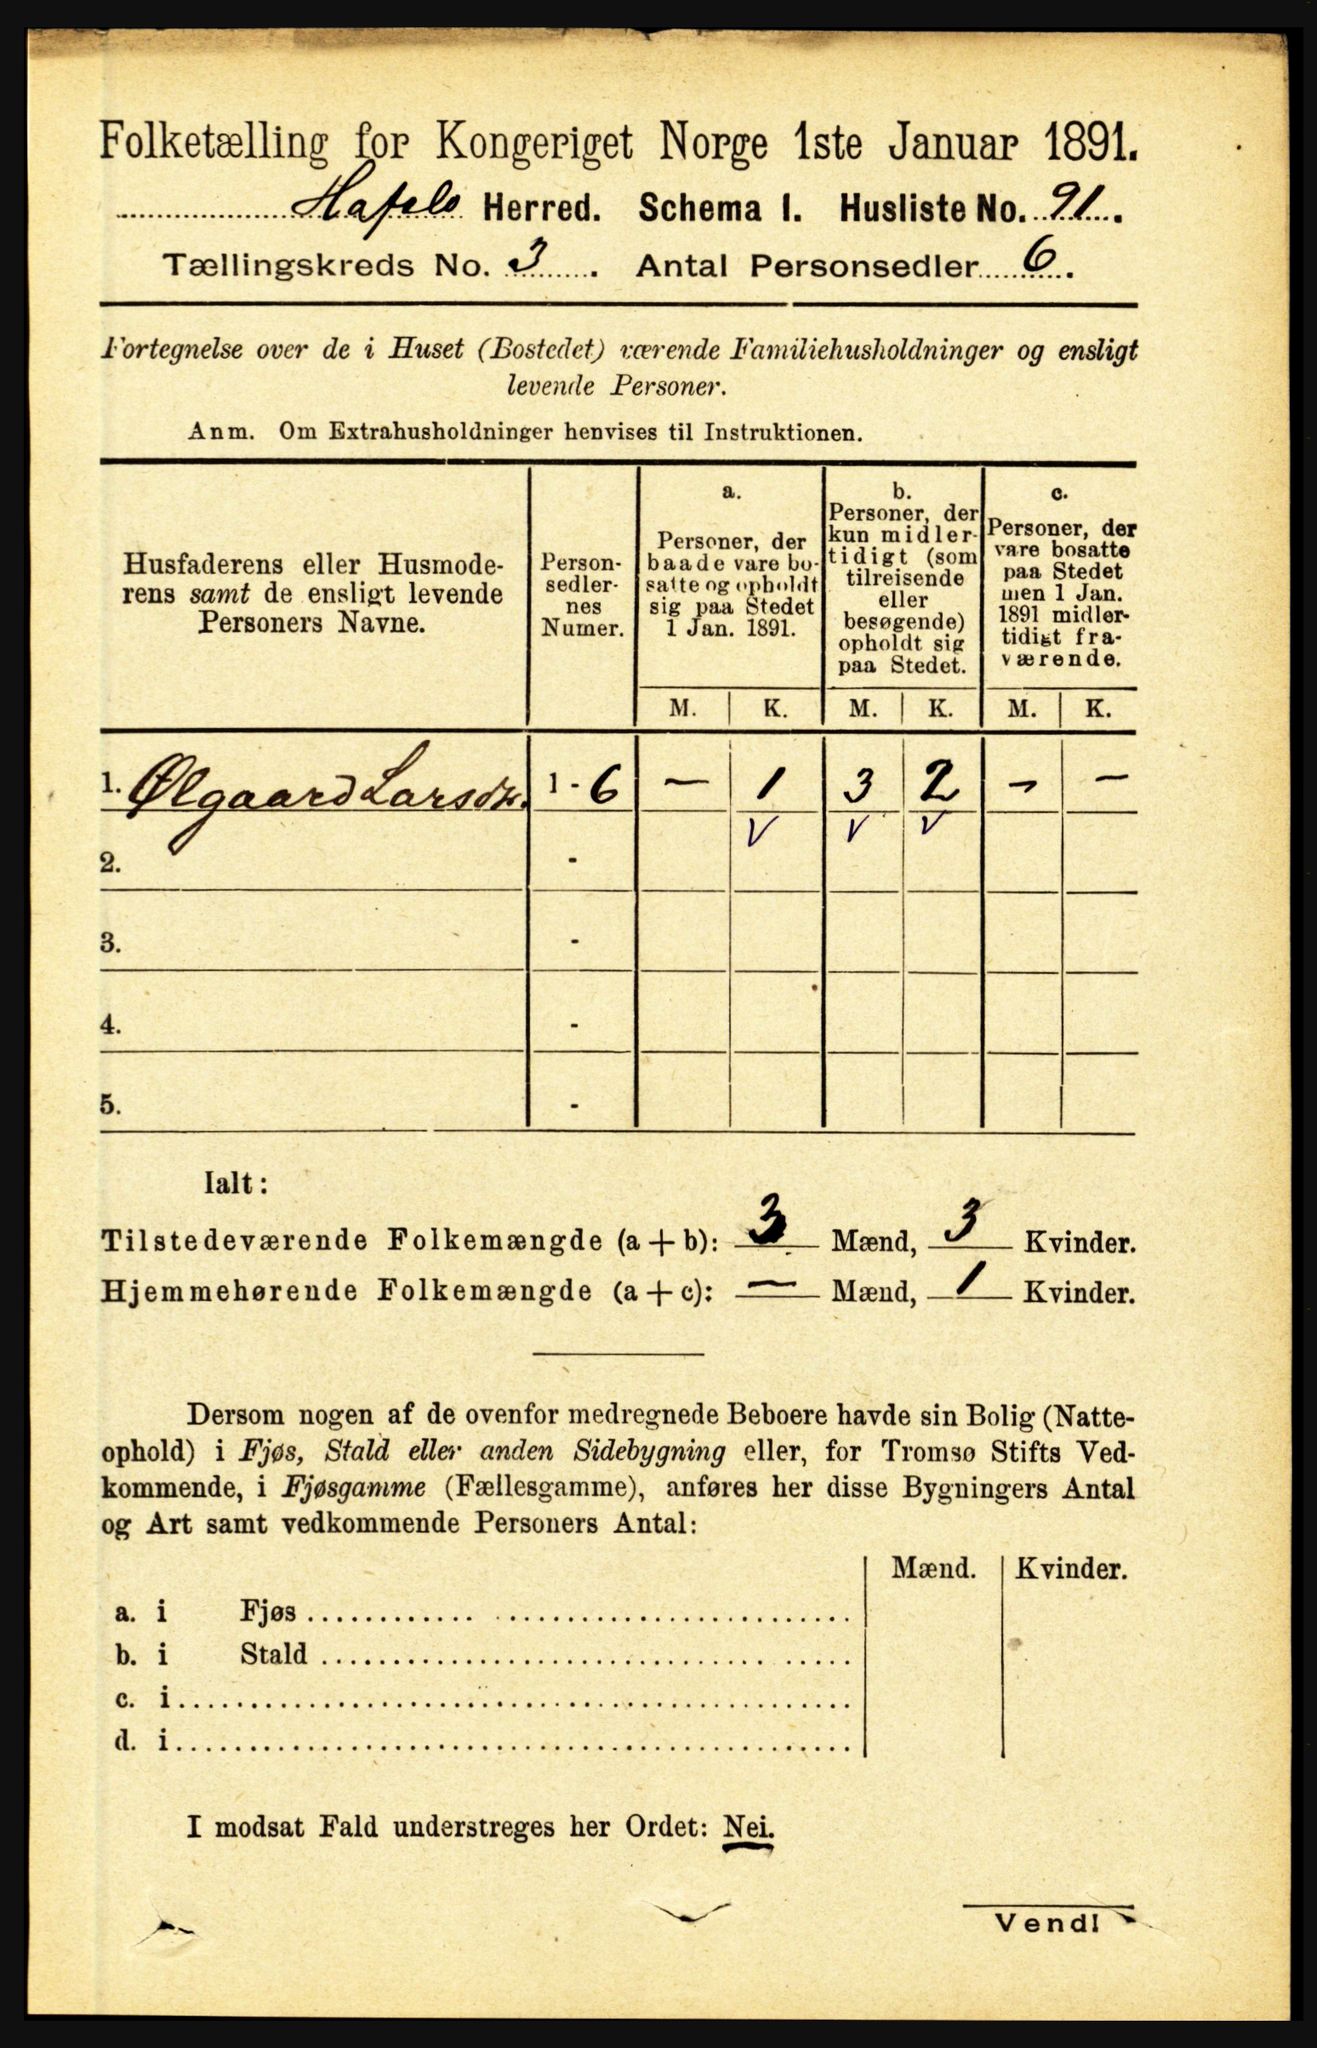 Folketælling for Kongeriget Norge 1ste Januar 1891.
Hafslo Herred. Schema I. Husliste No. 91.
Tællingskreds No. 3. Antal Personsedler 6.
Fortegnelse over de i Huset (Bostedet) værende Familiehusholdninger og ensligt
levende Personer.
Anm. Om Extrahusholdninger henvises til Instruktionen.
Husfaderens eller Husmode-
rens samt de ensligt levende
Personers Navne.
Person-
sedler-
nes
Numer.
a.
Personer, der
baade vare bo-
satte og opholdt
sig paa Stedet
1 Jan. 1891.
b.
Personer, der
kun midler-
tidigt (som
tilreisende
eller
besøgende)
opholdt sig
paa Stedet.
c.
Personer, der
vare bosatte
paa Stedet
men 1 Jan.
1891 midler-
tidigt fra-
værende.
M. K. M. K. M. K.
1. Ølgaard Larsdtr. 1 - 6 — 1 3 2 - -
V V V
2. -
3. -
4. -
5. -
Ialt:
Tilstedeværende Folkemængde (a + b): 3 Mænd, 3 Kvinder.
Hjemmehørende Folkemængde (a + c): — Mænd, 1 Kvinder.
Dersom nogen af de ovenfor medregnede Beboere havde sin Bolig (Natte-
ophold) i Fjøs, Stald eller anden Sidebygning eller, for Tromsø Stifts Ved-
kommende, i Fjøsgamme (Fællesgamme), anføres her disse Bygningers Antal
og Art samt vedkommende Personers Antal:
Mænd. Kvinder.
a. i Fjøs
b. i Stald
c. i
d. i
I modsat Fald understreges her Ordet: Nei.
Vend!